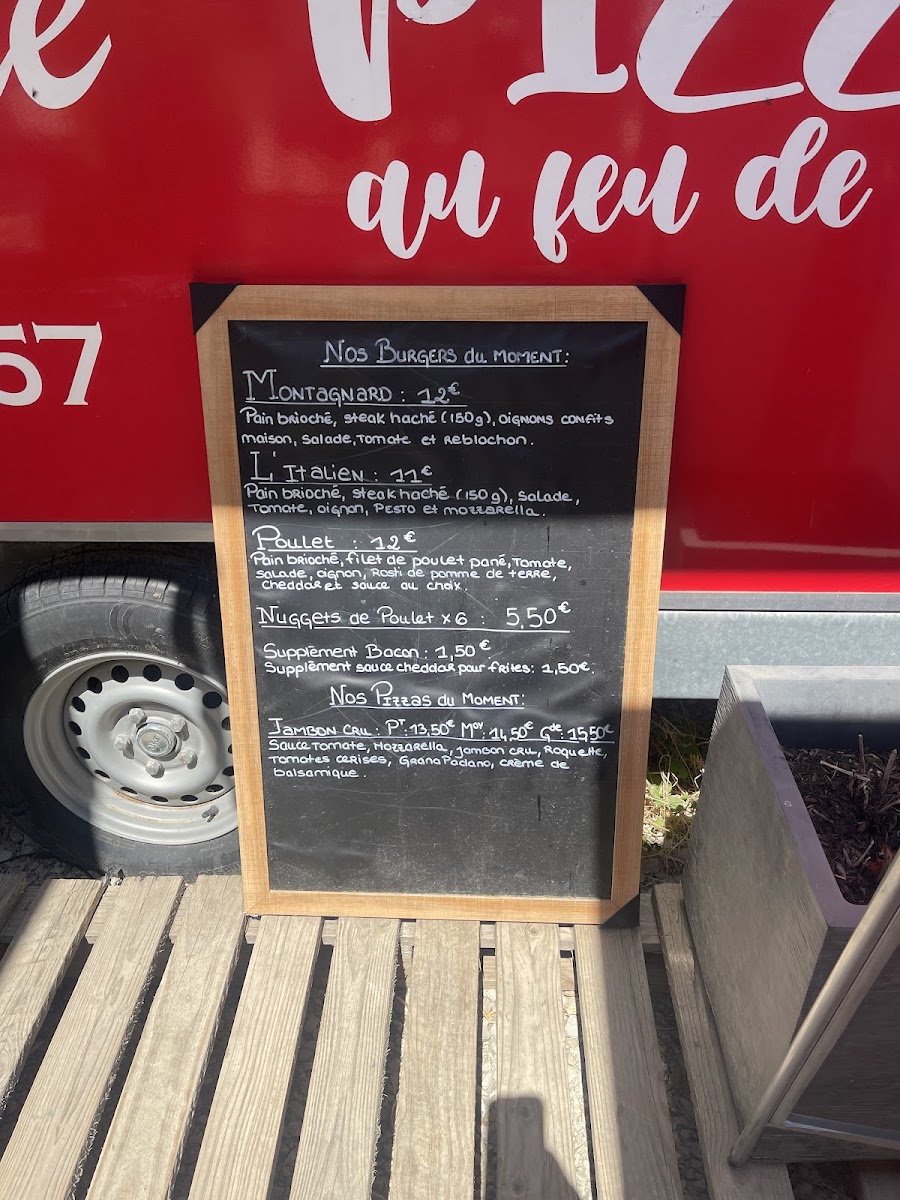 PIZZ
au feu de
57
Nos Burgers du moment:
Montagnard : 12€
Pain brioché, steak haché (150g), oignons confits
maison, salade, tomate et reblochon.
L'Italien : 11€
Pain brioché, steak haché (150g), salade,
tomate, oignon, pesto et mozzarella.
Poulet : 12€
Pain brioché, filet de poulet pané, tomate,
salade, oignon, Rosti de pomme de terre,
cheddar et sauce au choix.
Nuggets de Poulet x6 : 5,50€
Supplément Bacon : 1,50€
Supplément sauce cheddar pour frites: 1,50€.
Nos Pizzas du moment:
Jambon cru : Pt: 13,50€ Moy: 14,50€ Gde: 15,50€
Sauce tomate, Mozzarella, jambon cru, Roquette,
tomates cerises, Grana Padano, crème de
balsamique.